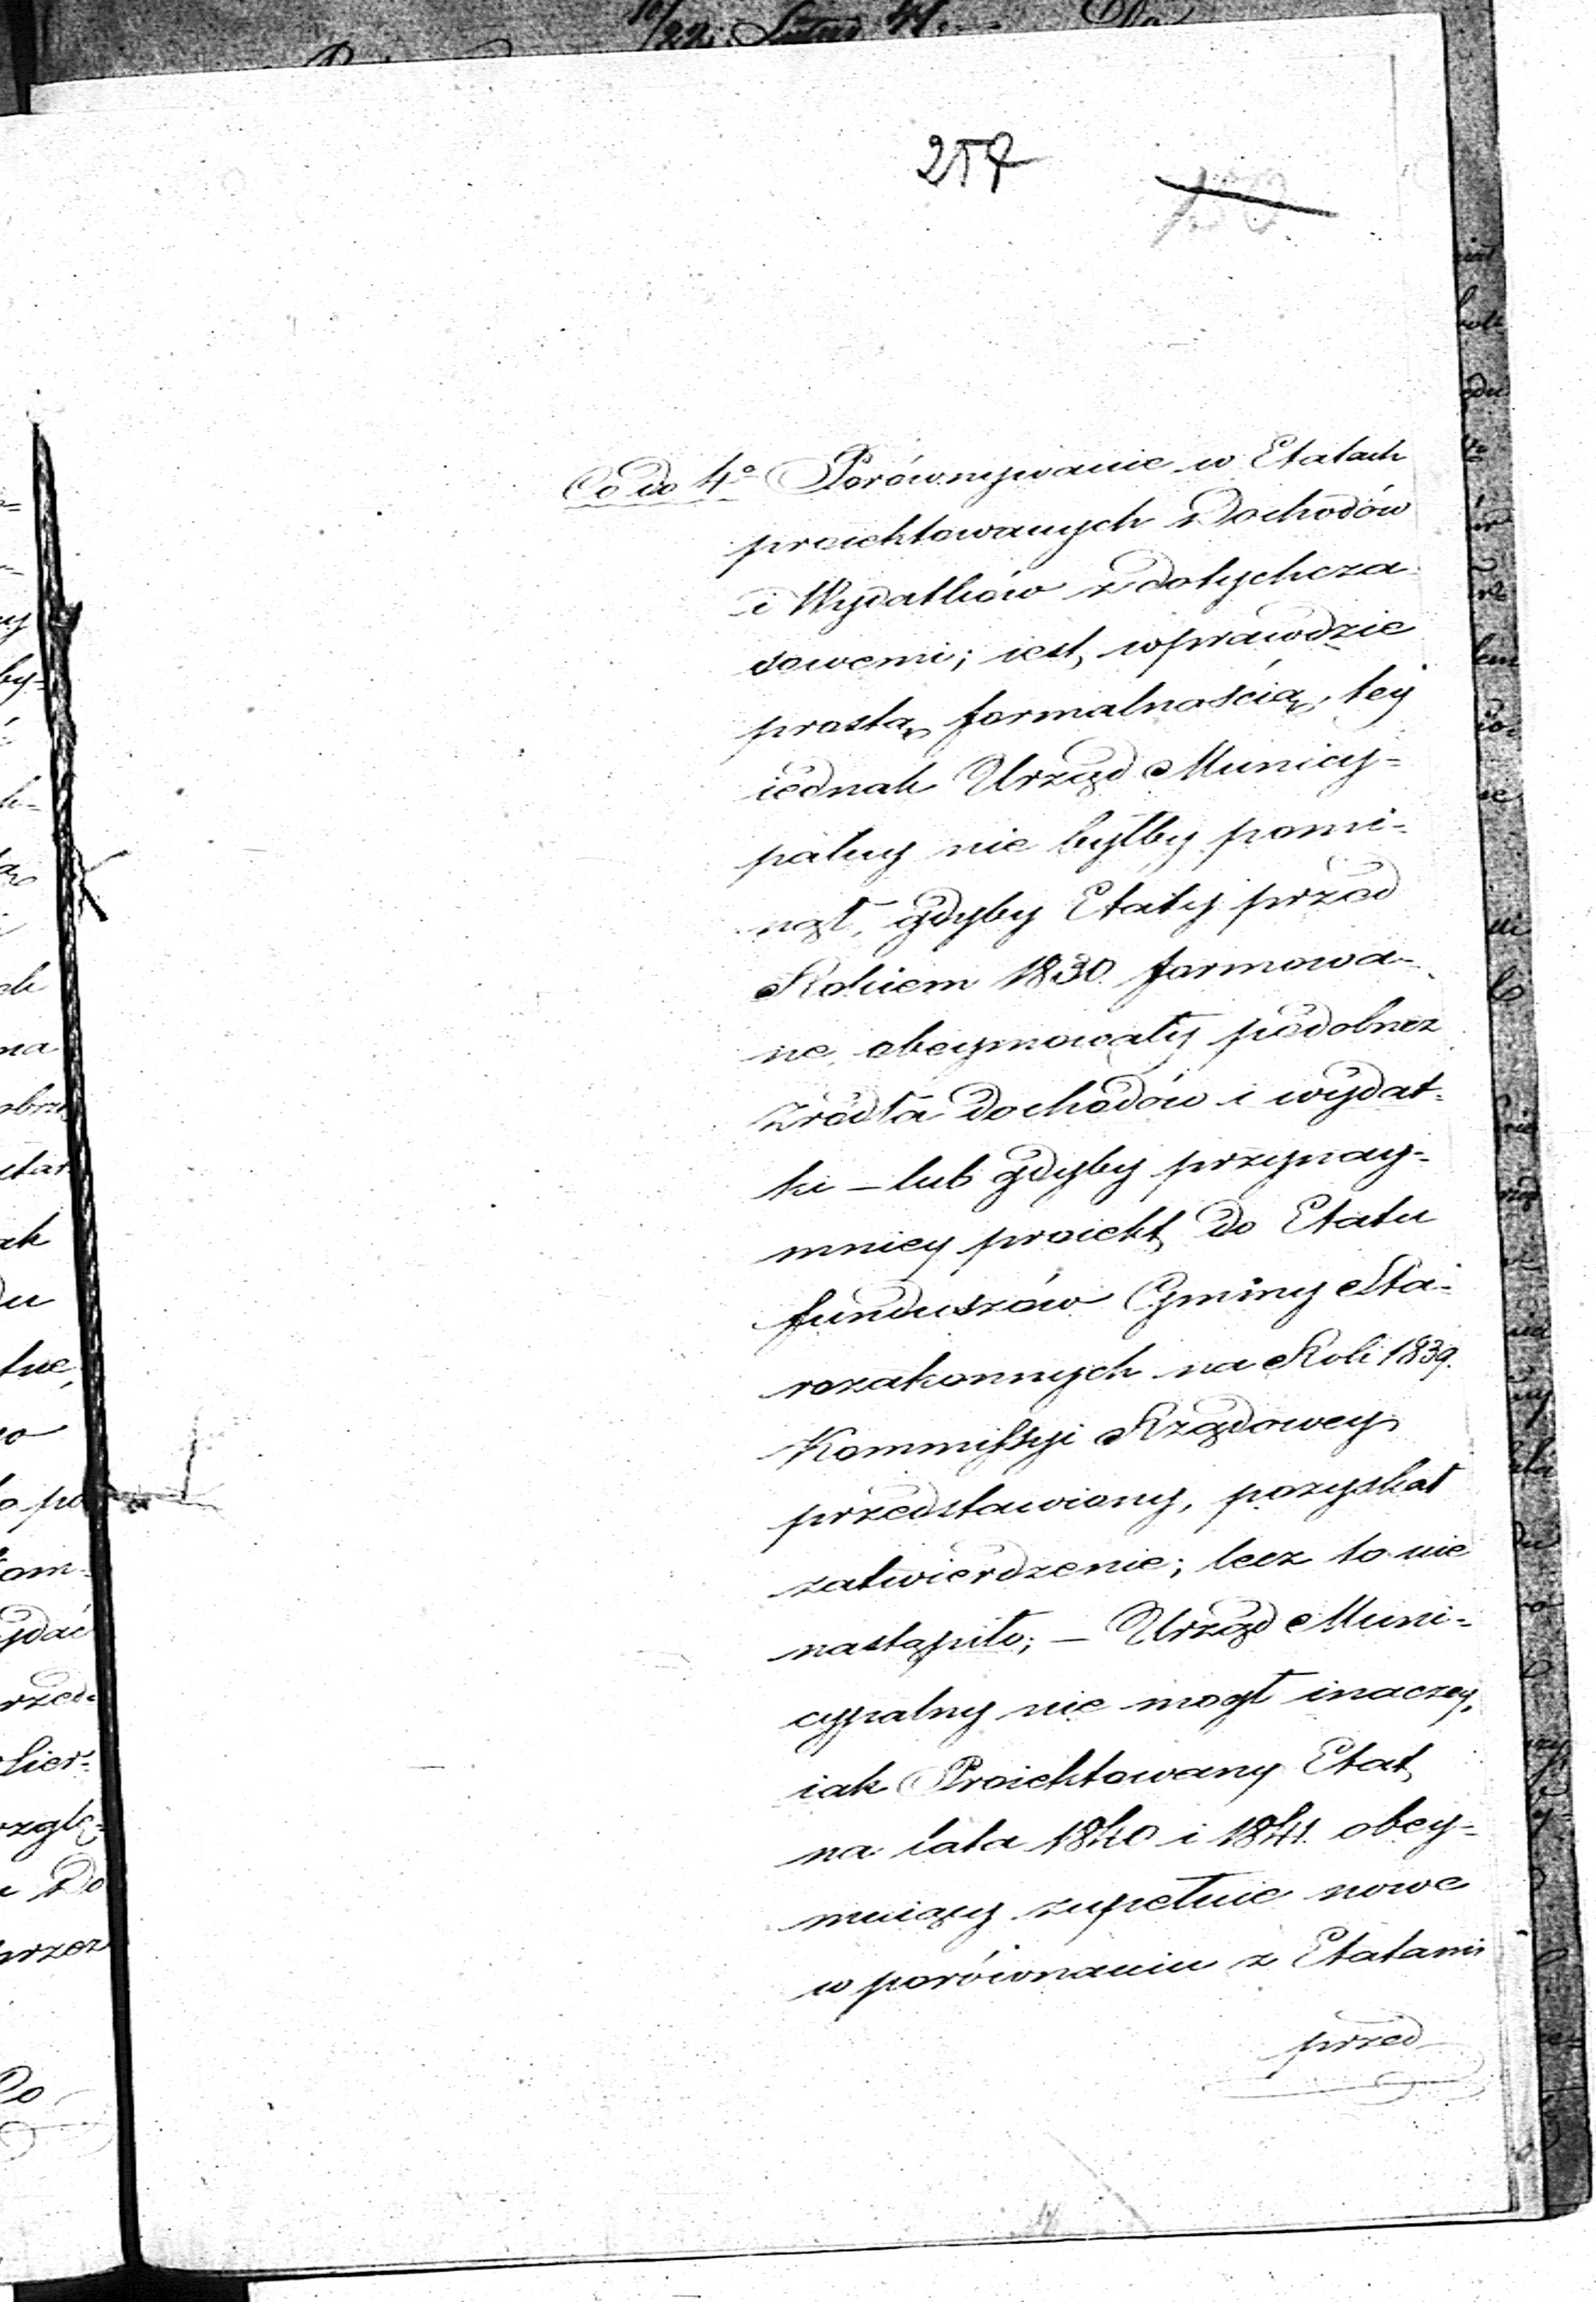 257
150
Co do 4o Porównywanie w Etatach
proiektowanych Dochodów
i Wydatków z dotychcza
sowemi; iest, wprawdzie
prostą formalnością, tey
iednak Urząd Municy=
palny nie byłby pomi=
nął, gdyby Etaty przed
Rokiem 1830 formowa=
ne, obeymowały podobnez
źródła dochodów i wydat=
ki — lub gdyby przynay=
mniey proiekt do Etatu
funduszów Gminy Sta=
rozakonnych na Rok 1839.
Kommissyi Rządowey
przedstawiony, pozyskał
zatwierdzenie; lecz to nie
nastąpiło; — Urząd Muni=
cypalny nie mogł inaczey,
iak Proiektowany Etat
na lata 1840 i 1841. obey=
muiący zupełnie nowe
w porównaniu z Etatami
przed